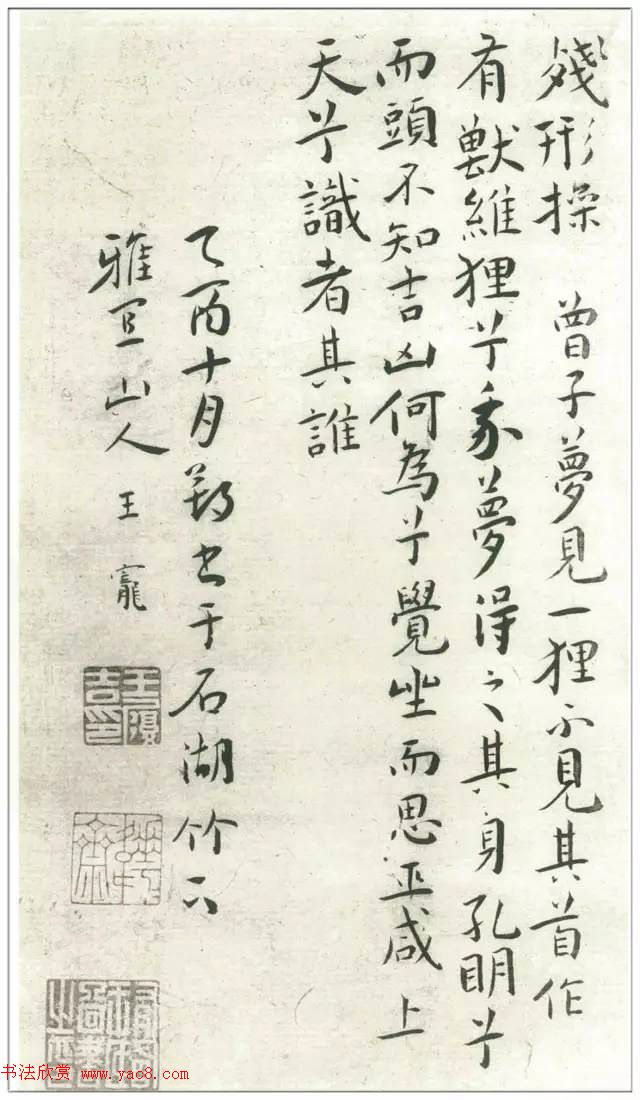 殘形操 曾子夢見一狸不見其首作
有獸維狸兮我夢得之其身孔明兮
而頭不知吉凶何為兮覺坐而思巫咸上
天兮識者其誰
乙酉十月朔書于石湖竹下
雅宜山人 王寵
王履吉印
书法欣赏 www.yac8.com